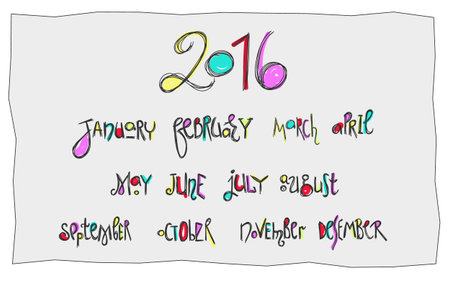 2016
January February March April
May June July August
September October November Desember